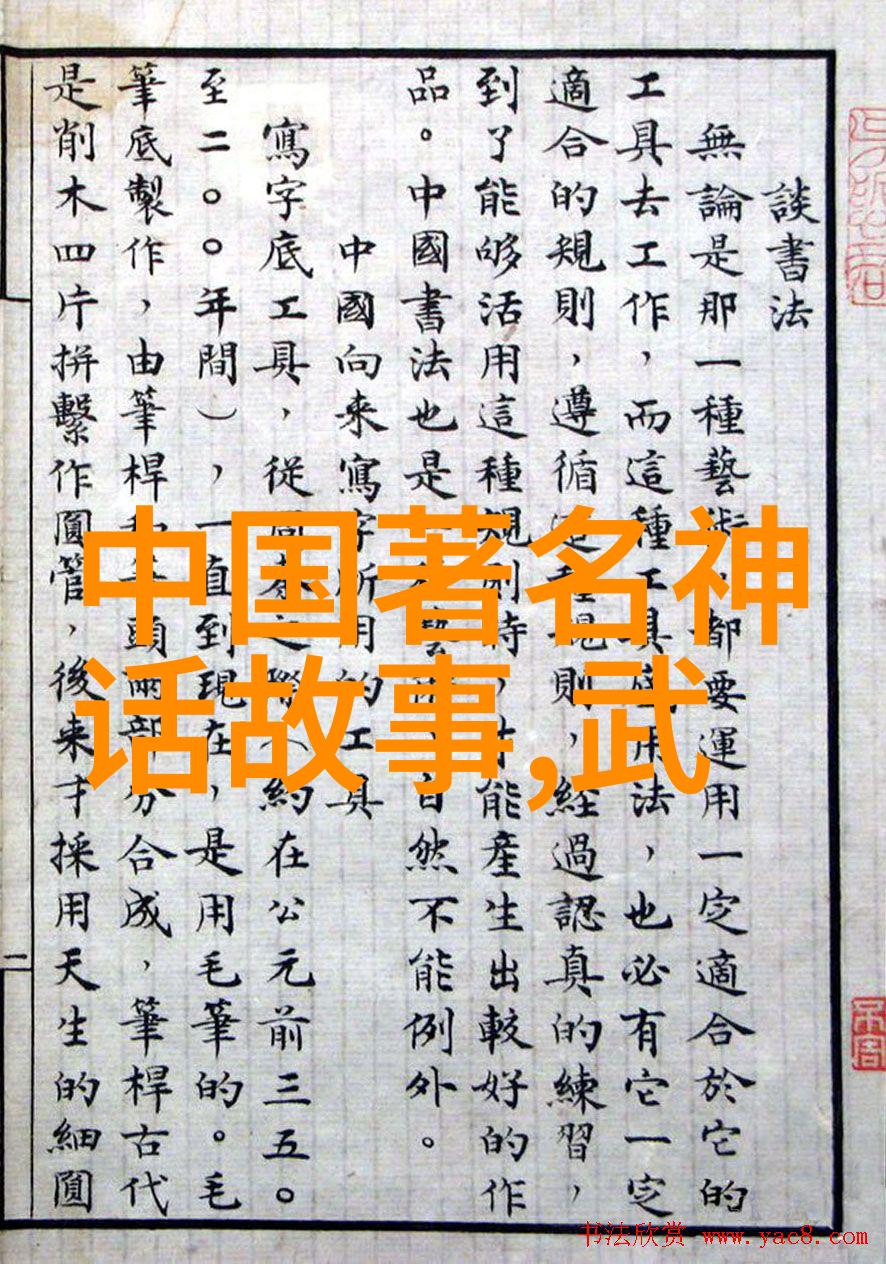 談書法
無論是那一種藝術，都要運用一定適合於它的
工具去工作，而這種工具底用法，也必有它一定
適合的規則，遵循這種規則，經過認真的練習，
到了能够活用這種規則時，才能產生出較好的作
品。中國書法也是一種藝術，自然不能例外。
中國向来寫字所用的工具
寫字底工具，從周之際（約在公元前三五〇
至二〇〇年間），一直到現在，是用毛筆的。毛
筆底製作，由筆桿和筆頭兩部分合成，筆桿古代
是削木四片拼繫作圓管，後来才採用天生的細圓
二
中国著名神
话故事,武
书法欣赏 www.yac8.com